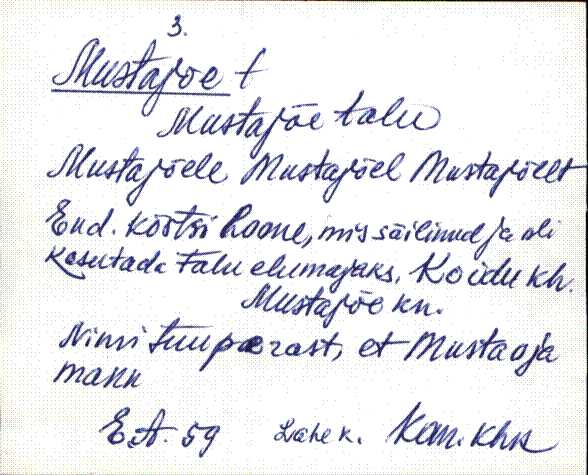 3.
Mustajõe t
Mustajõe talu
Mustajõele Mustajõel Mustajõelt
End. kõrtsi hoone, mis säilinud ja oli
kasutada talu elumajaks. Koidu kh.
Mustajõe kn.
Nimi tuu pärast, et Mustaoja
mann
EA. 59 Lahe k. Kan. khk